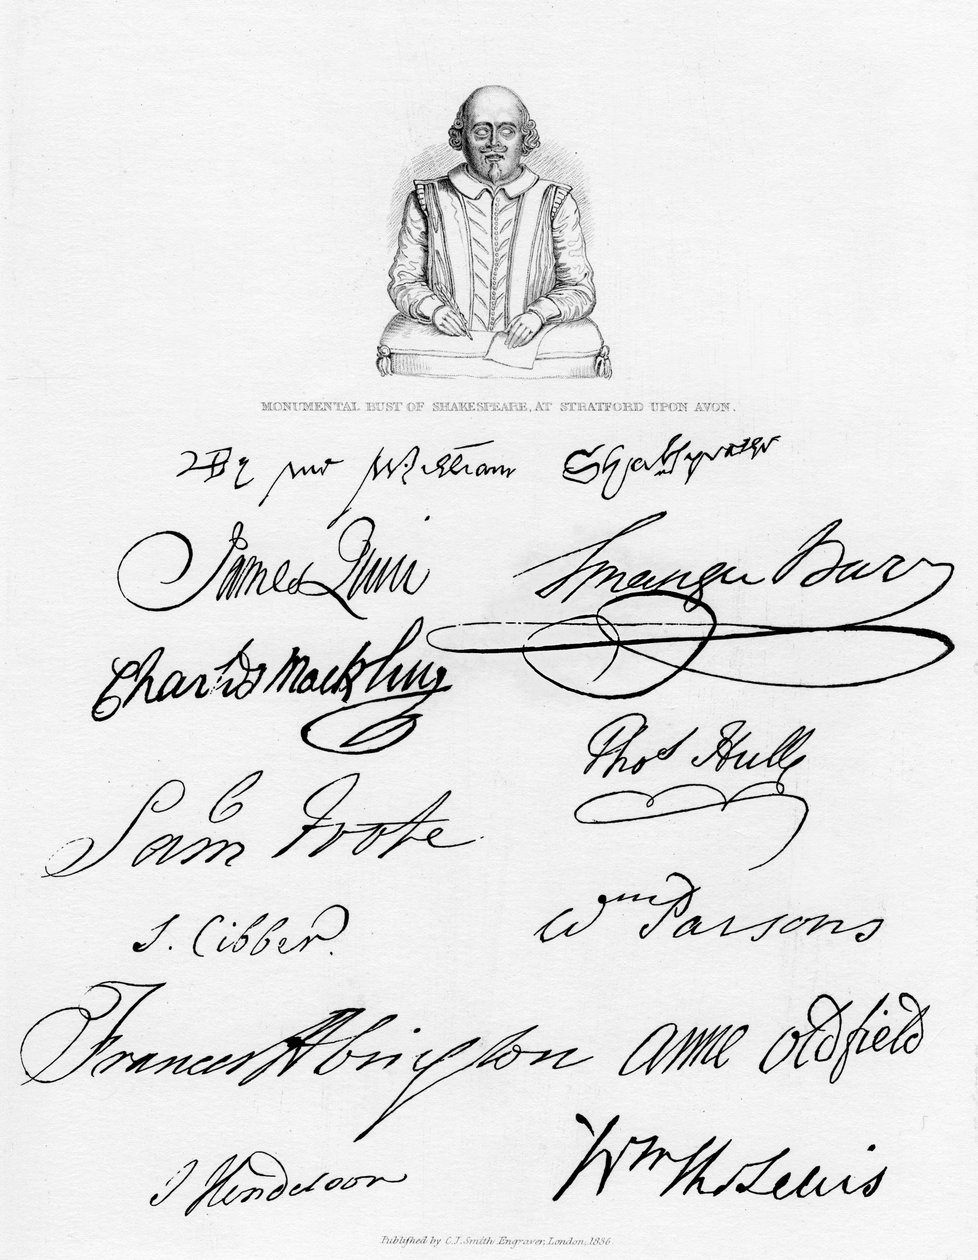 MONUMENTAL BUST OF SHAKESPEARE, AT STRATFORD UPON AVON.
By me William Shakspeare
James Quin
Spranger Barry
Charles Macklin
Thos Hull
Sam Foote
S. Cibber.
Wm Parsons
Frances Abington
Anne Oldfield
J Henderson
Wm Thos Lewis
Published by C. J. Smith Engraver, London, 1836.